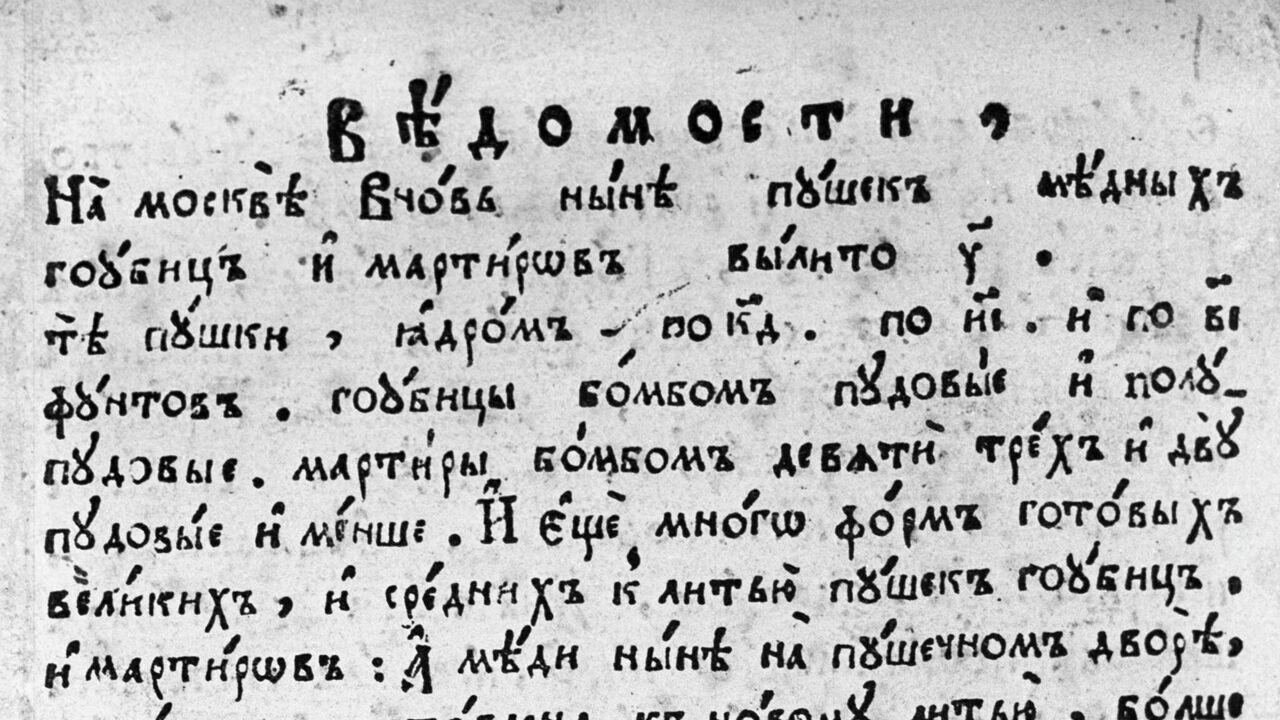 Вѣ́домости ,
На̀ москвѣ̀ Вно́вь ны́нѣ пу́шекъ мѣ́дныхъ
гоу́бицъ и҆ марти́рѡвъ вы́лито у҃ .
тѣ̀ пу́шки , ꙗ҆дро́мъ - по к҃д . по и҃і . и҆ по в҃і
фу́нтовъ . гоу́бицы бо́мбомъ пудовы́е и҆ полу́-
пудовые . марти́ры бо́мбомъ девѧтѝ тре́хъ и҆ двꙋ̀
пудовы́е и҆ ме́нше . И҆ є҆щѐ мно́гѡ фо́рмъ гото́выхъ
вели́кихъ , и҆ сре́днихъ к̾ литью̀ пу́шекъ гоу́бицъ .
и҆ марти́рѡвъ : А҆ мѣ́ди ны́нѣ на̀ пу́шечномъ дворѣ̀ ,
къ но́вому литью̀ , бо́лше